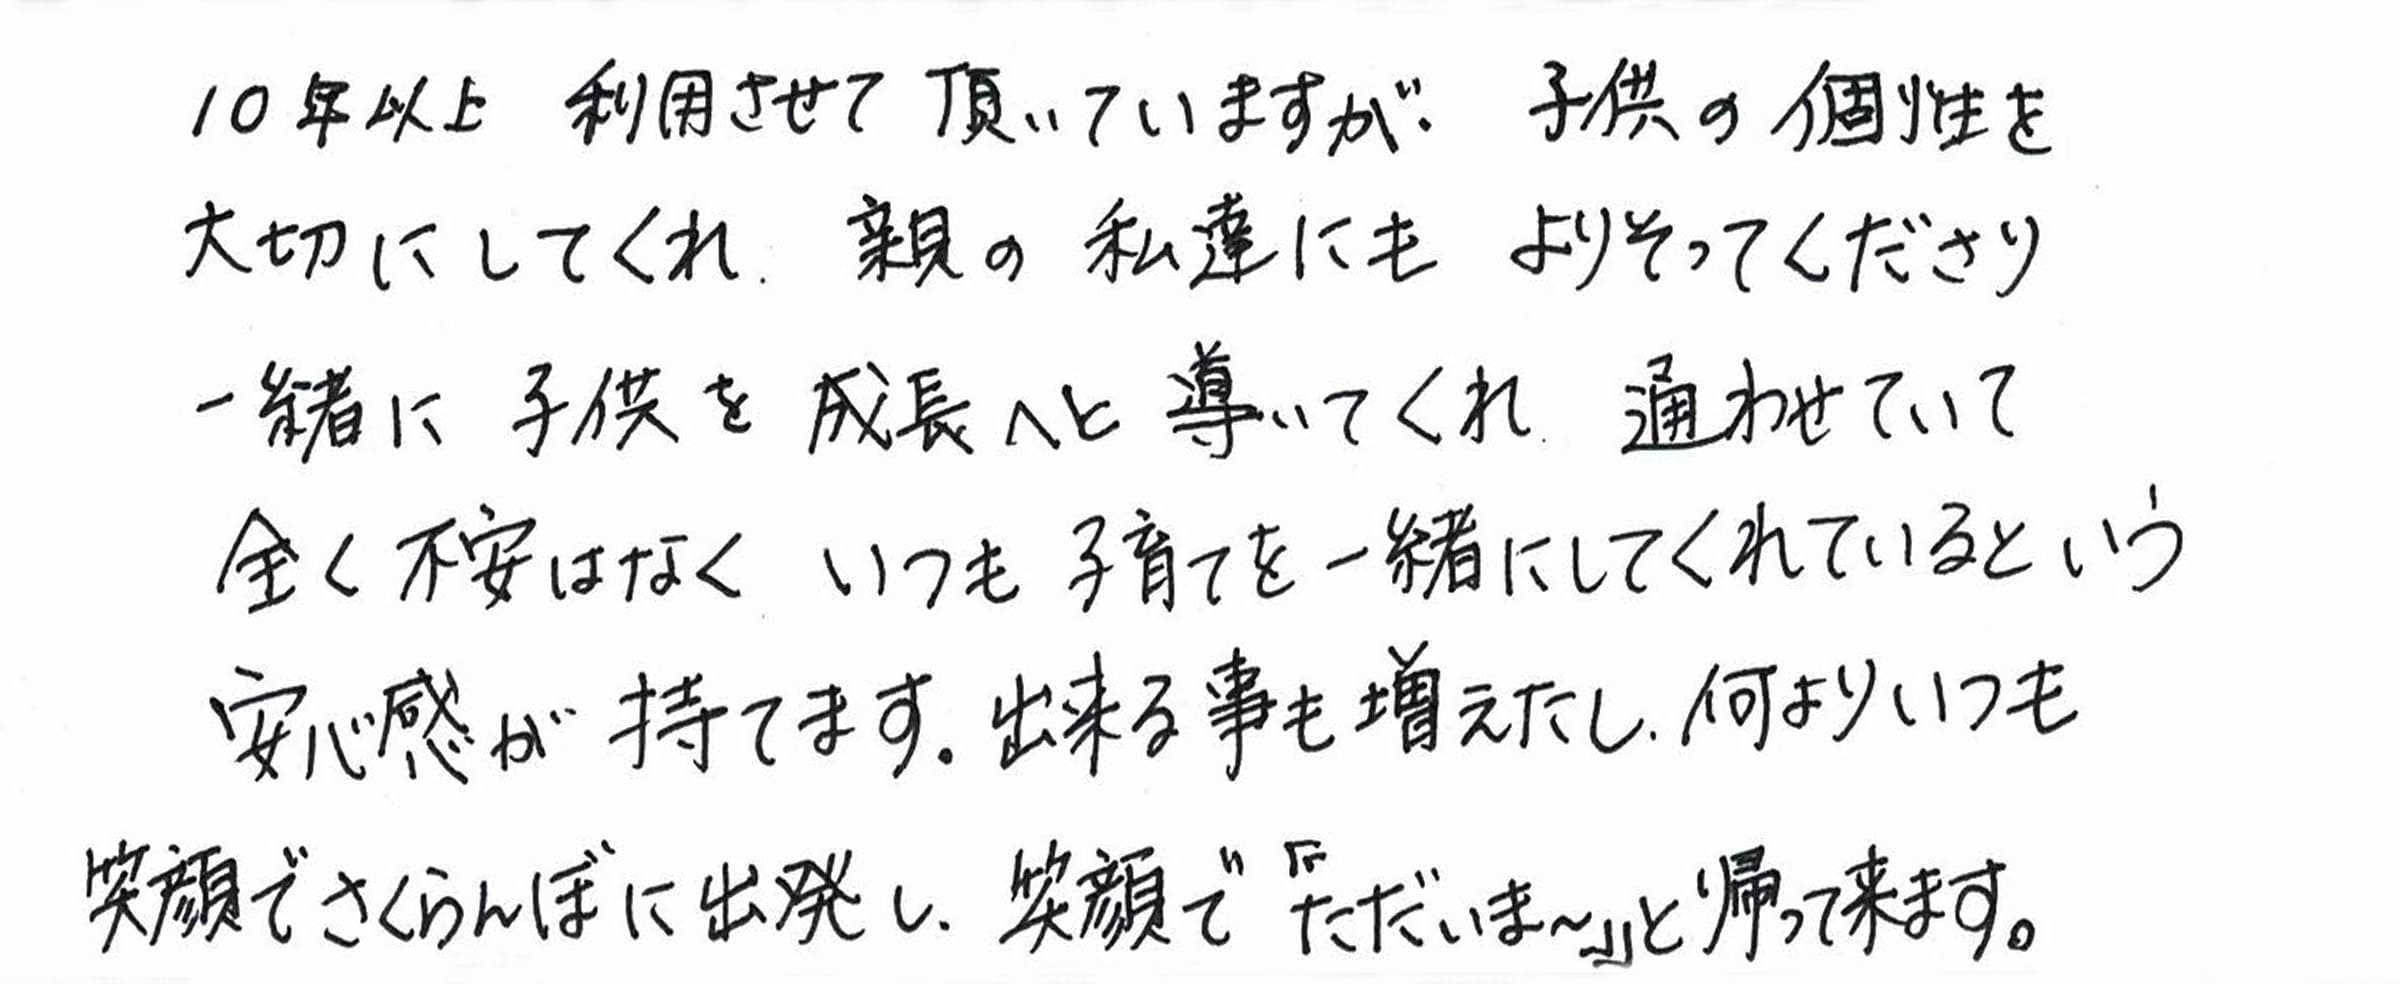 10年以上 利用させて頂いていますが、子供の個性を
大切にしてくれ、親の私達にもよりそってくださり
一緒に子供を成長へと導いてくれ、通わせていて
全く不安はなく いつも子育てを一緒にしてくれているという
安心感が持てます。出来る事も増えたし、何よりいつも
笑顔でさくらんぼに出発し、笑顔で『ただいま~』と帰って来ます。